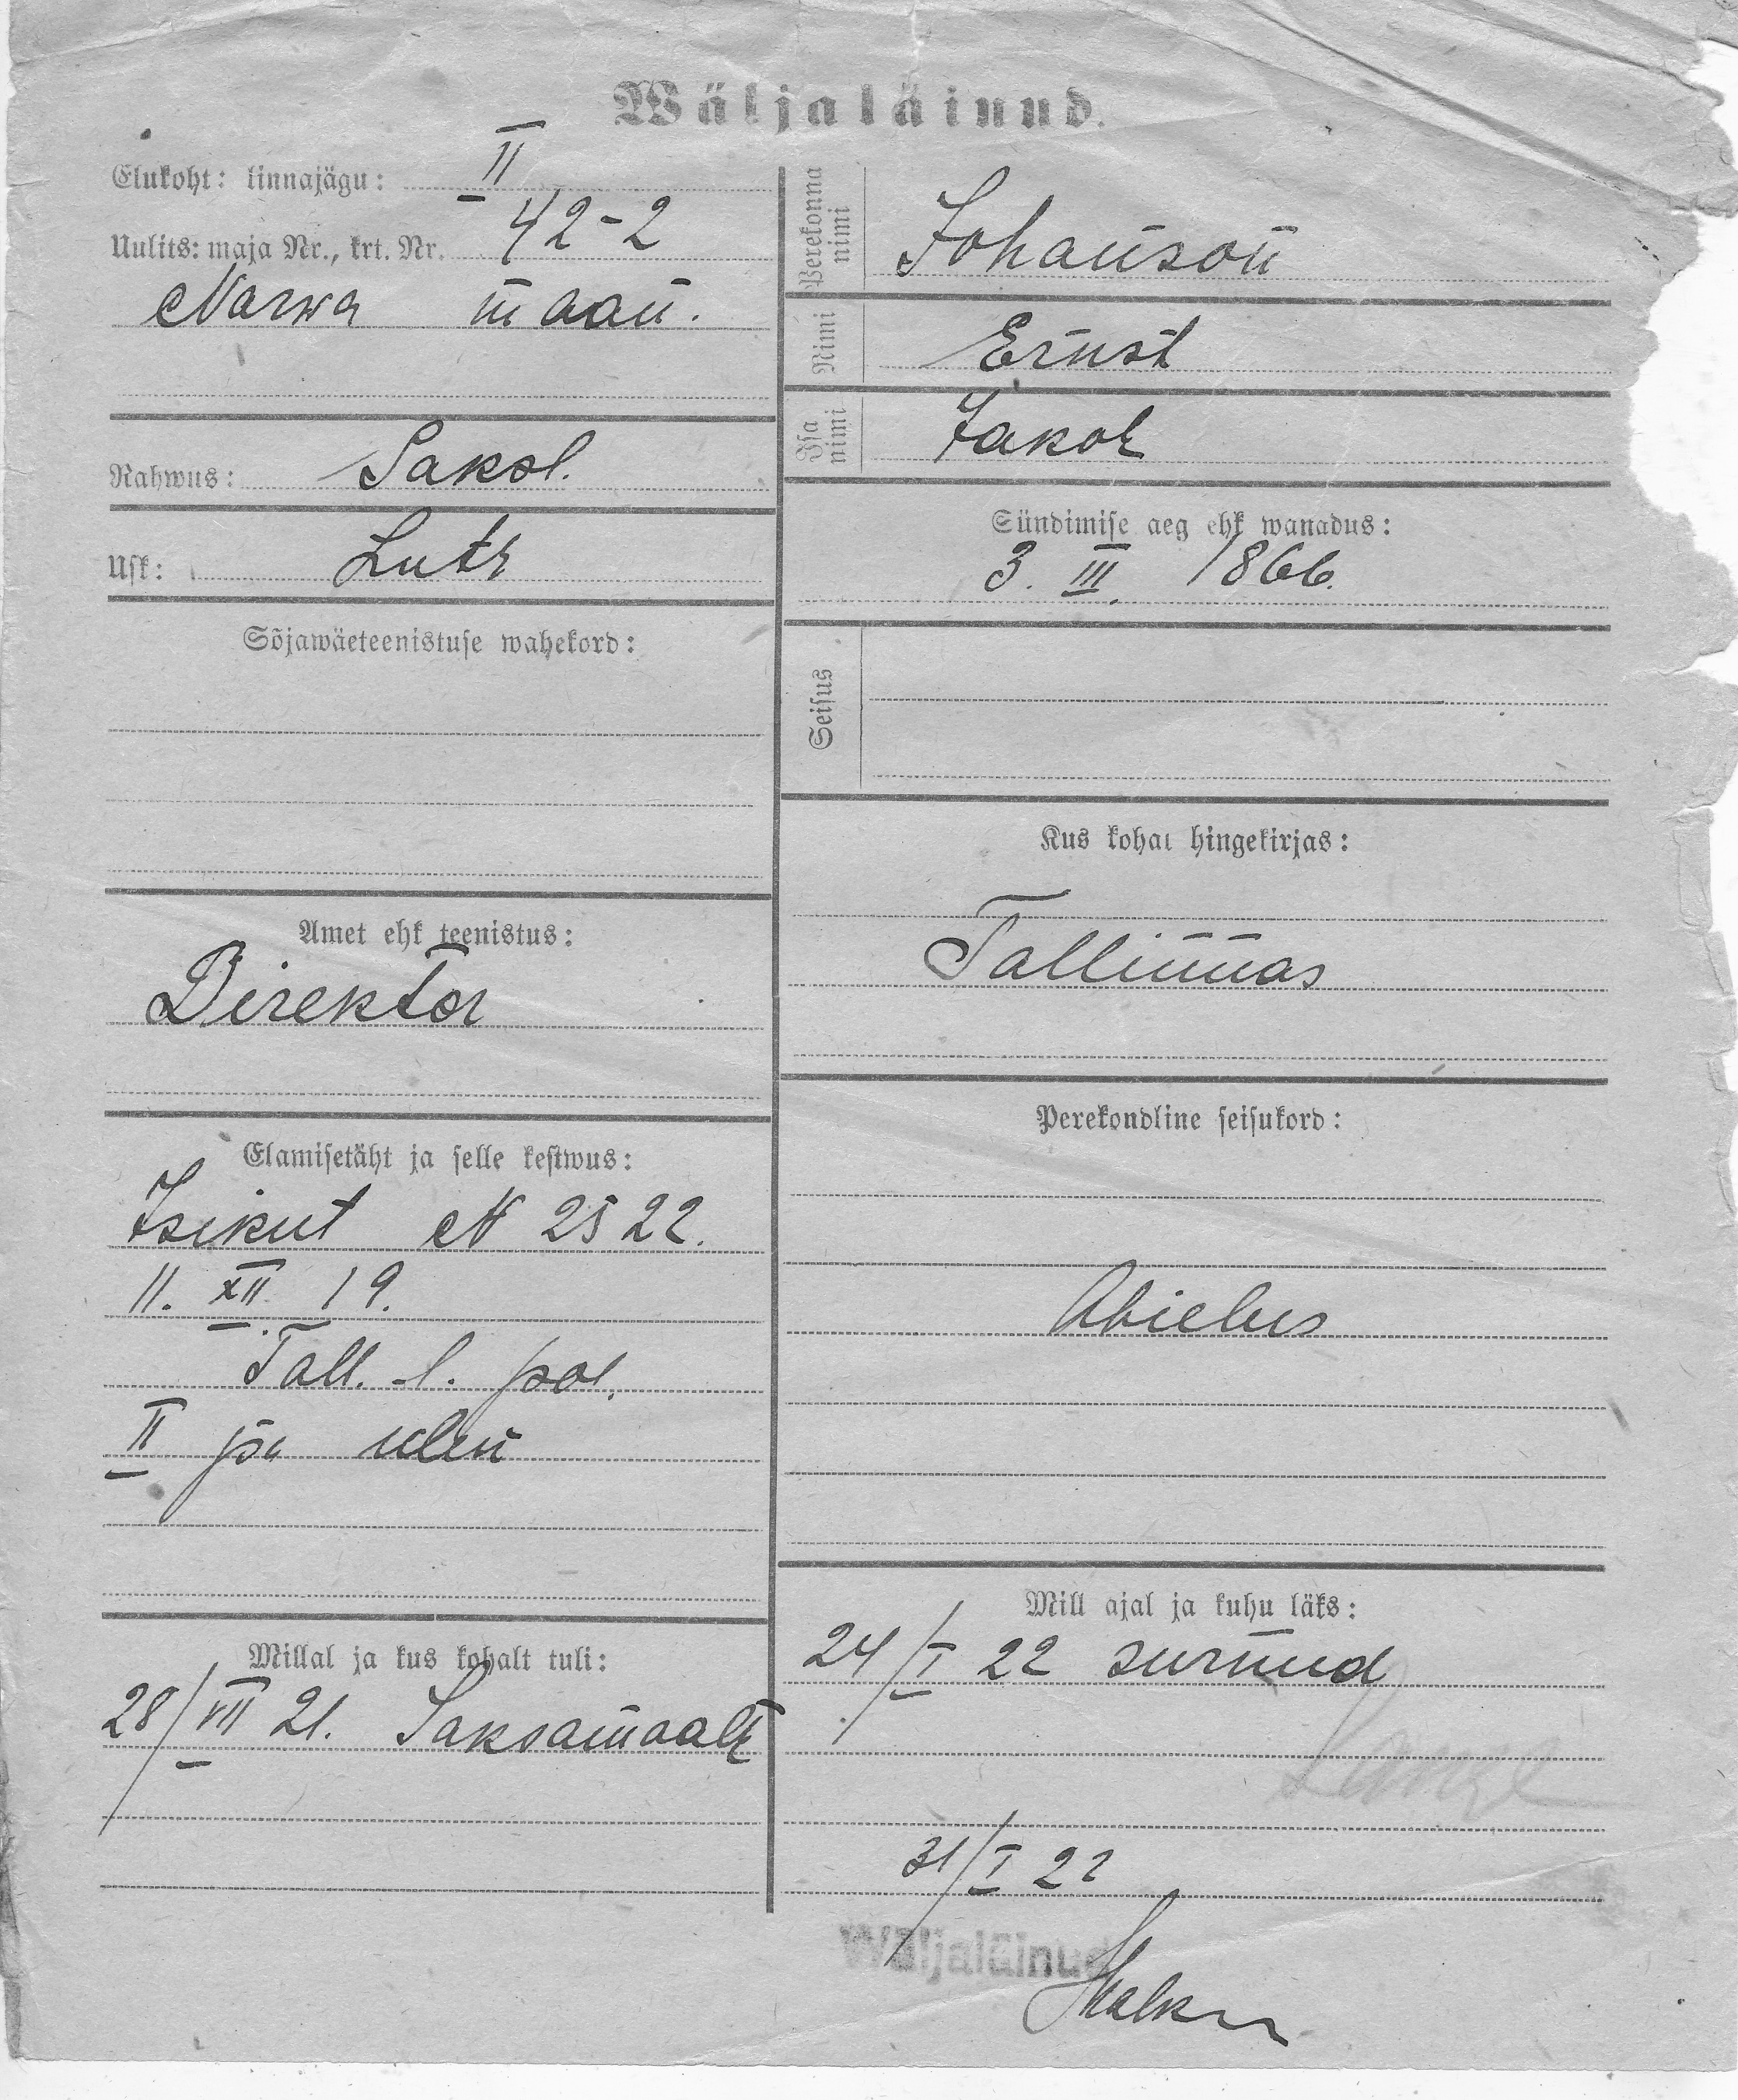 Wäljaläinud.
Elukoht: linnajägu: II
Uulits: maja Nr., krt. Nr. 42-2
Narwa maan.
Rahwus: Saksl.
Usk: Lutr
Sõjawäeteenistuse wahekord:
Amet ehk teenistus:
Direktor
Elamisetäht ja selle kestwus:
Isikut N 2522.
11. XII 19.
Tall. l. pol.
II jsk ülem
Millal ja kus kohalt tuli:
28/VII 21. Saksamaalt
Perekonna nimi
Johanson
Nimi
Ernst
Isa nimi
Jakob
Sündimise aeg ehk wanadus:
3. III. 1866.
Seisus
Kus kohal hingekirjas:
Tallinnas
Perekondline seisukord:
Abielus
Mill ajal ja kuhu läks:
24/I 22 surnud
31/I 22
Wäljaläinud